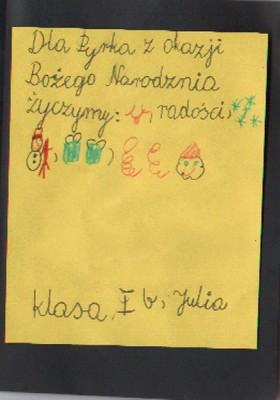 Dla Pyrka z okazji
Bożego Narodznia
życzymy: , radości,
, , 
klasa I b, Julia